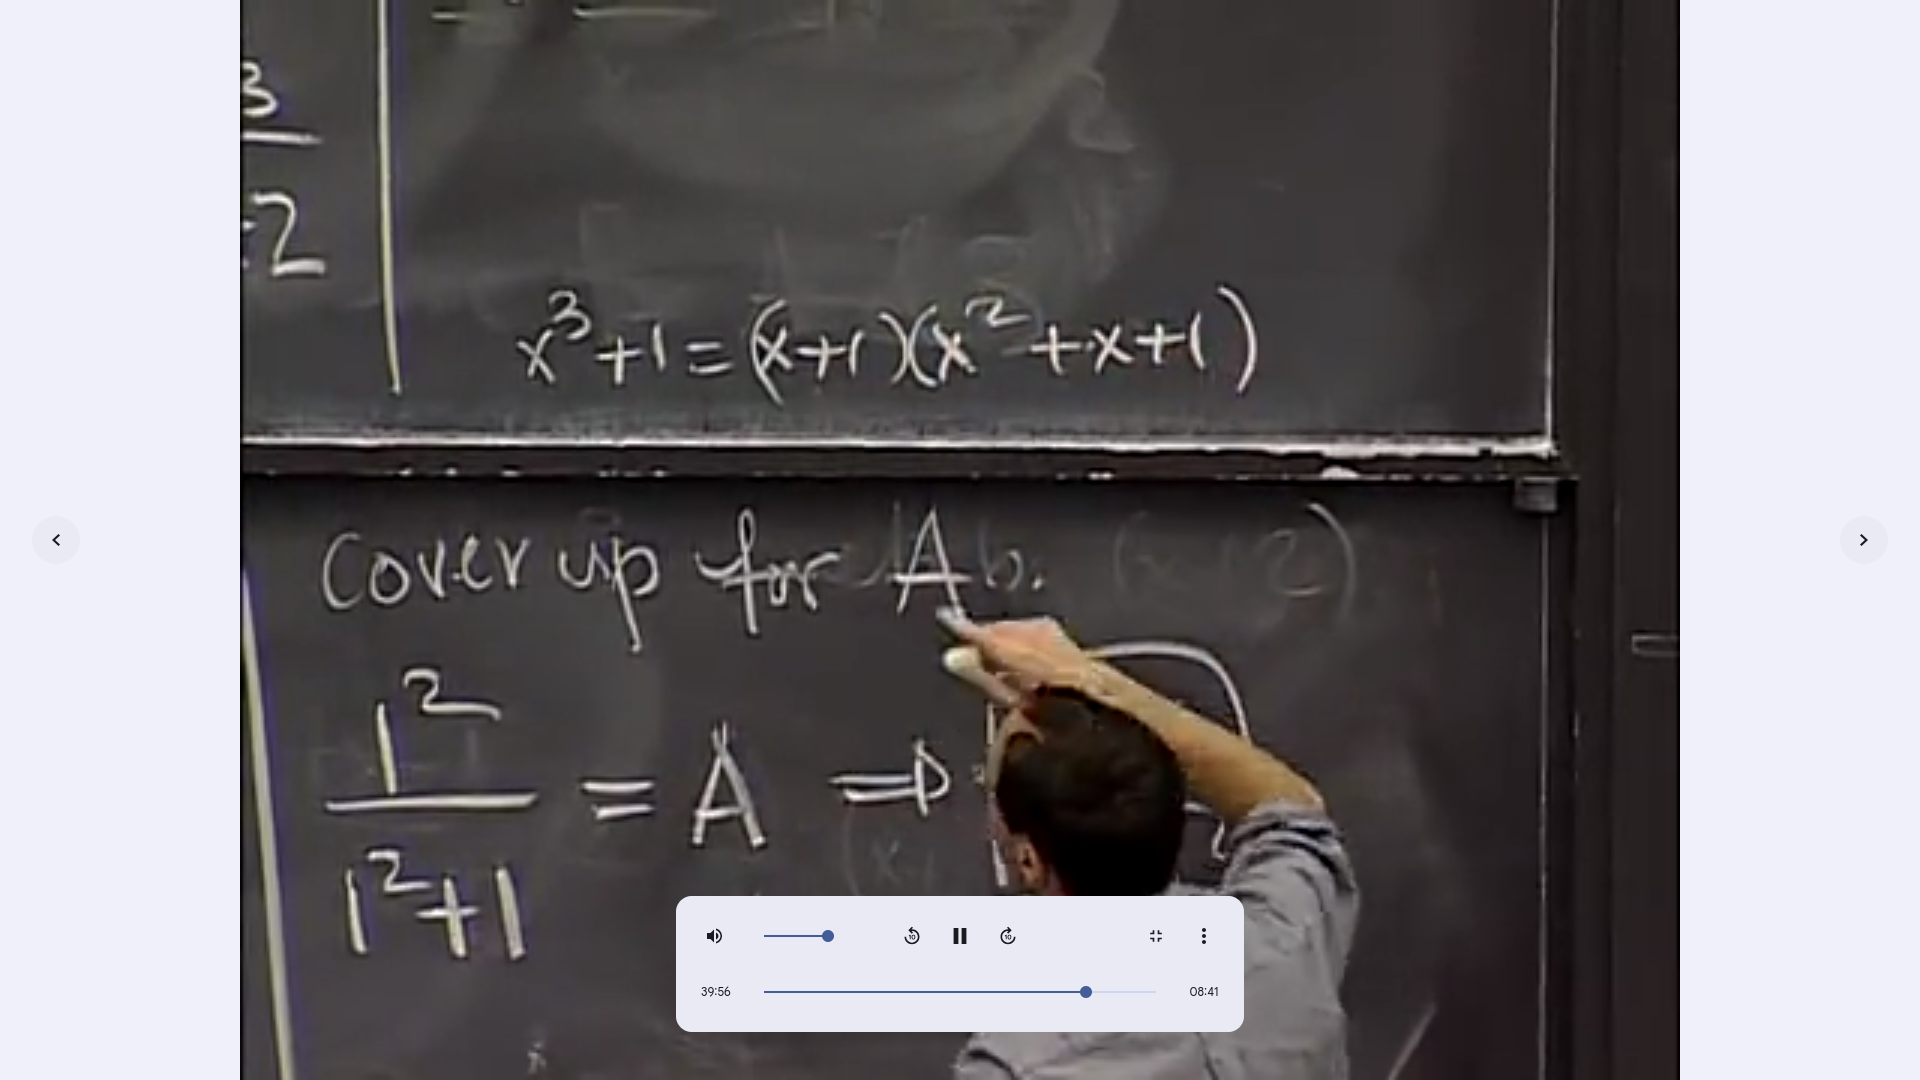 3
2
x³+1=(x+1)(x²+x+1)
Cover up for A
1²
1²+1
= A ⇒
39:56
08:41